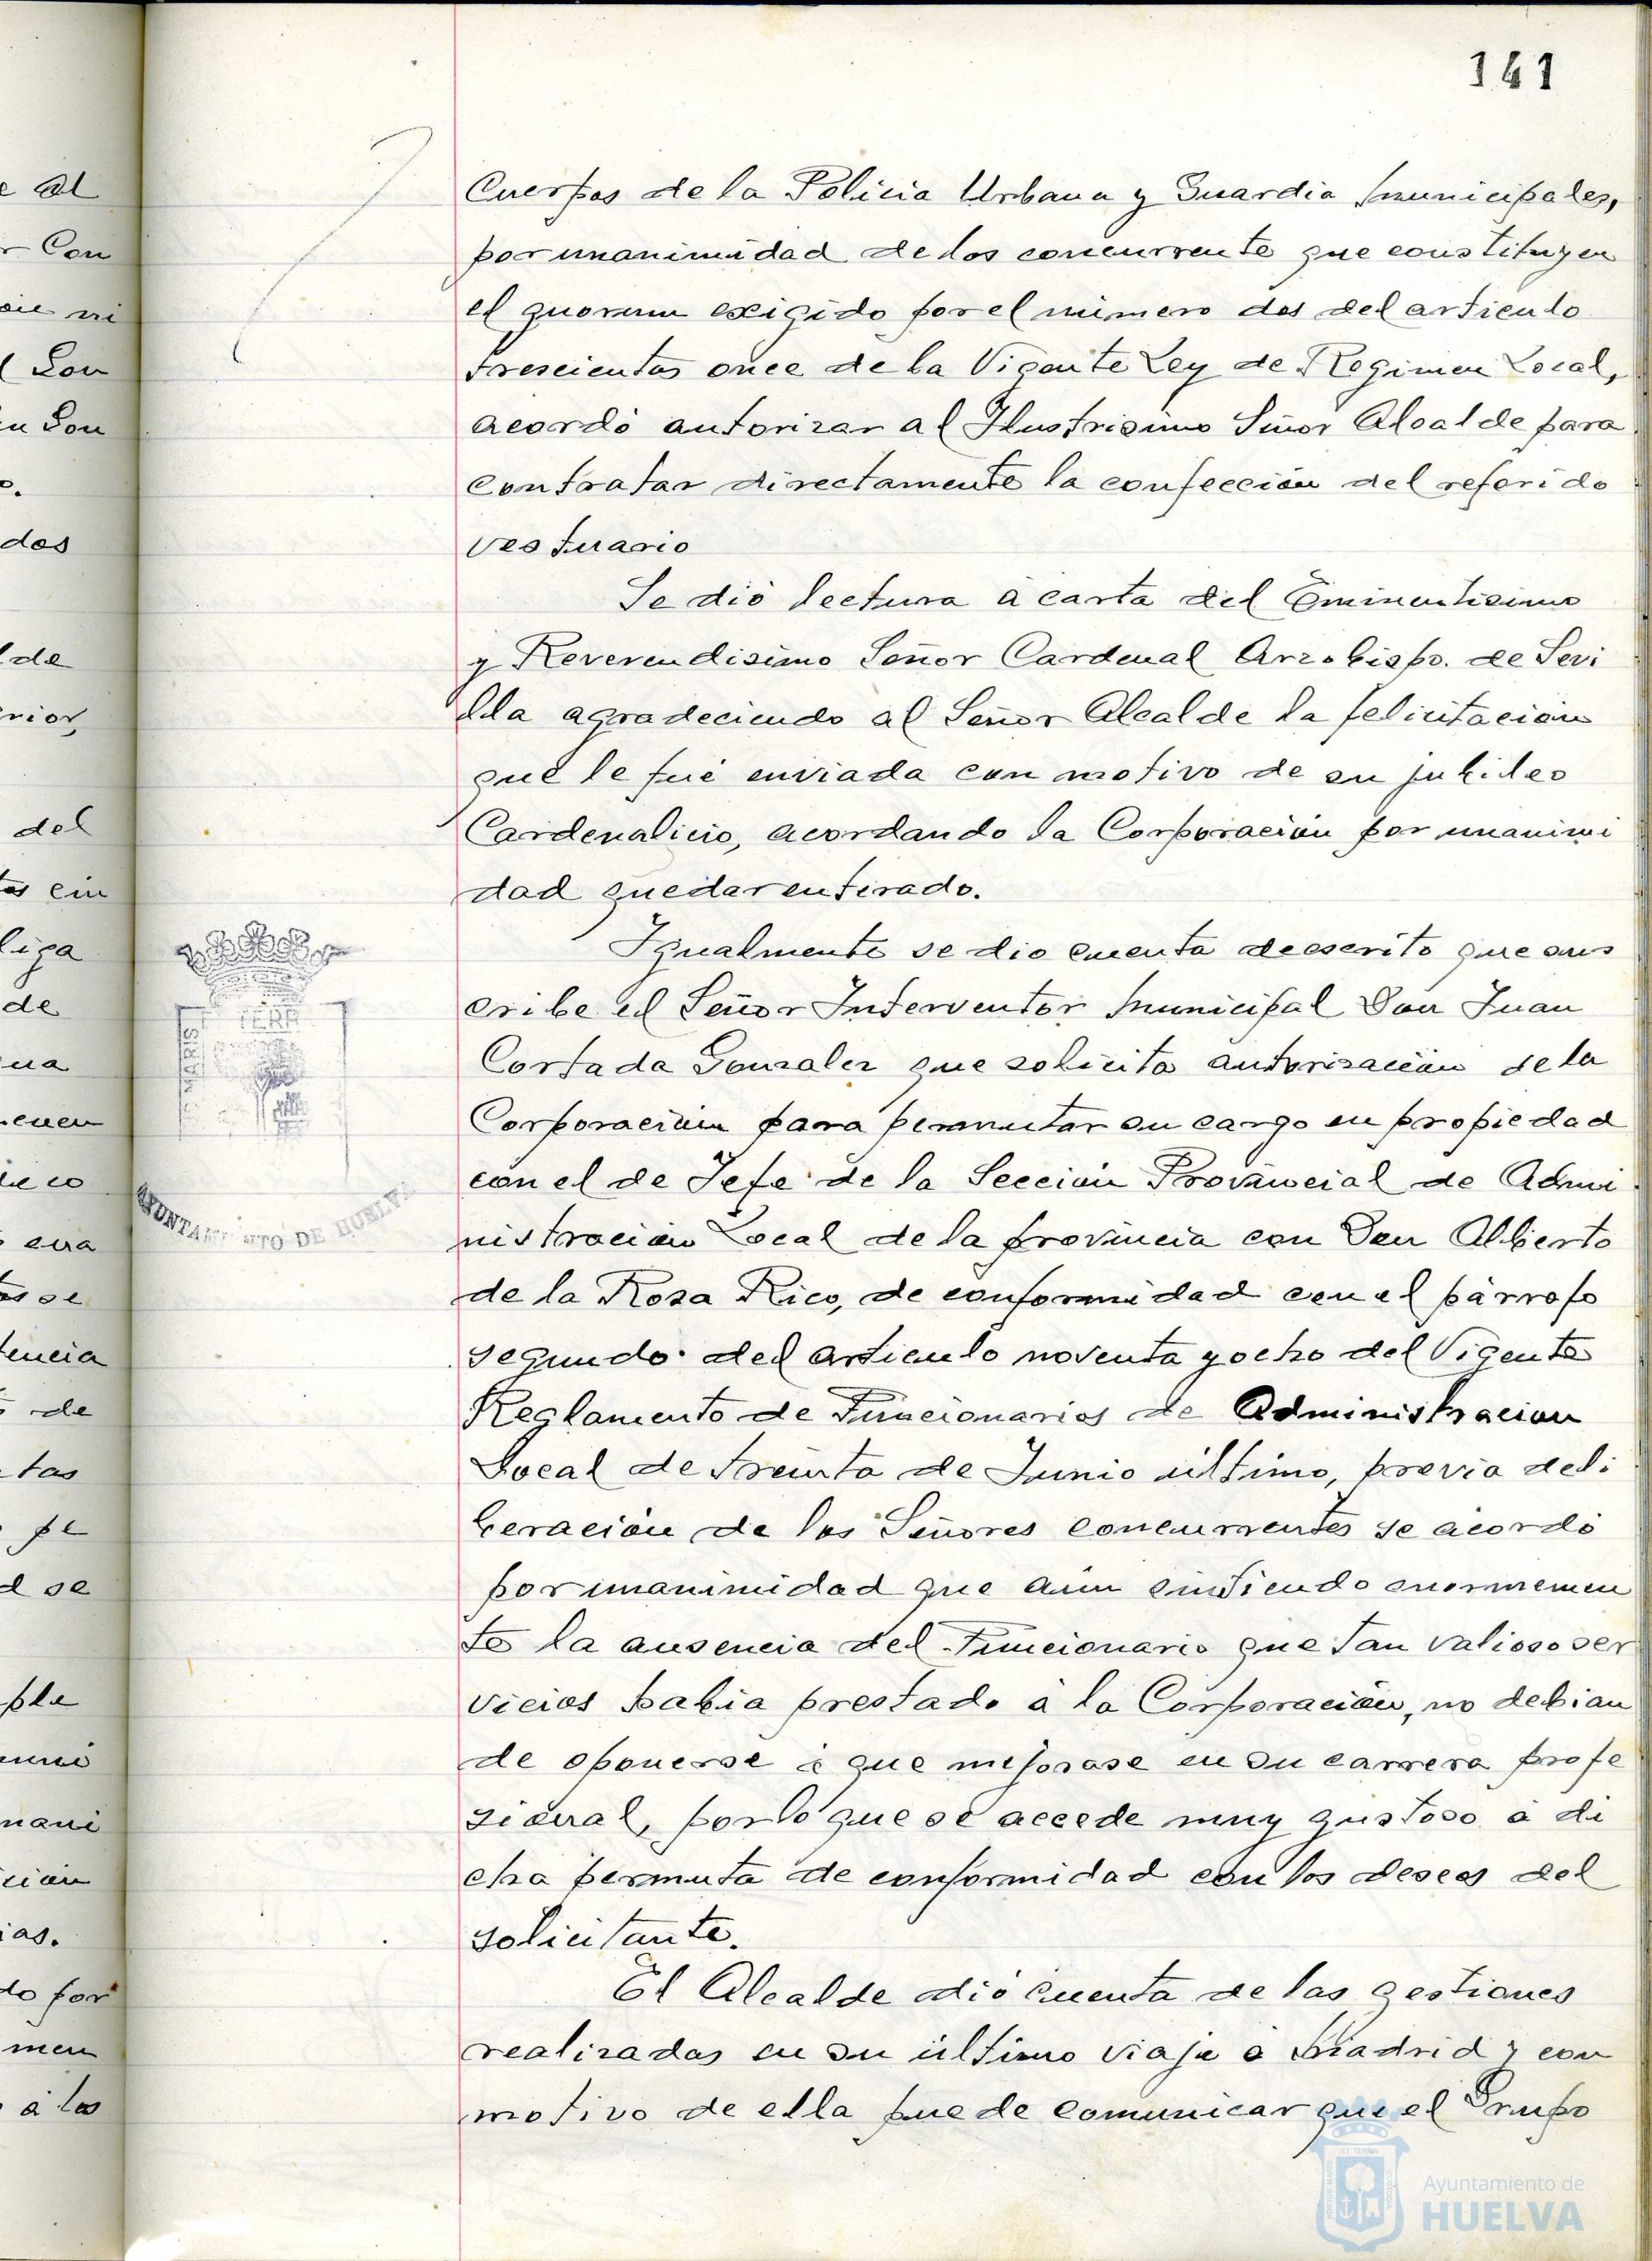 141
Cuerpos de la Policia Urbana y Guardia Municipales,
por unanimidad de los concurrente que constituyen
el quorum exigido por el número dos del articulo
trescientos once de la Vigente Ley de Regimen Local,
acordó autorizar al Ilustrisimo Señor Alcalde para
contratar directamente la confección del referido
vestuario
Se dió lectura á carta del Eminentisimo
y Reverendisimo Señor Cardenal Arzobispo. de Sevi
lla agradeciendo al Señor Alcalde la felicitación
que le fué enviada con motivo de su jubileo
Cardenalicio, acordando la Corporación por unanimi
dad quedar enterado.
Igualmente se dio cuenta de escrito que sus
cribe el Señor Interventor Municipal Don Juan
Cortada Gonzalez que solicita autorización de la
Corporación para permutar su cargo en propiedad
con el de Jefe de la Sección Provincial de Admi
nistración Local de la provincia con Don Alberto
de la Rosa Rico, de conformidad con el párrafo
segundo del articulo noventa y ocho del Vigente
Reglamento de Funcionarios de Administracion
Local de treinta de Junio último, previa deli
beración de los Señores concurrentes se acordó
por unanimidad que aún sintiendo enormemen
te la ausencia del Funcionario que tan valioso ser
vicios habia prestado á la Corporación, no debian
de oponerse á que mejorase en su carrera profe
sional, por lo que se accede muy gustoso á di
cha permuta de conformidad con los deseos del
solicitante.
El Alcalde dió cuenta de las gestiones
realizadas en su último viaje á Madrid y con
motivo de ella puede comunicar que el Grupo
AYUNTAMIENTO DE HUELVA
Ayuntamiento de
HUELVA
e al
r Con
ni
Don
n Don
o.
dos
de
rior,
del
tos cin
liga
de
na
cuen
ico
se
tencia
de
tas
pe
d se
ple
nani
ción
ias.
do por
men
á los